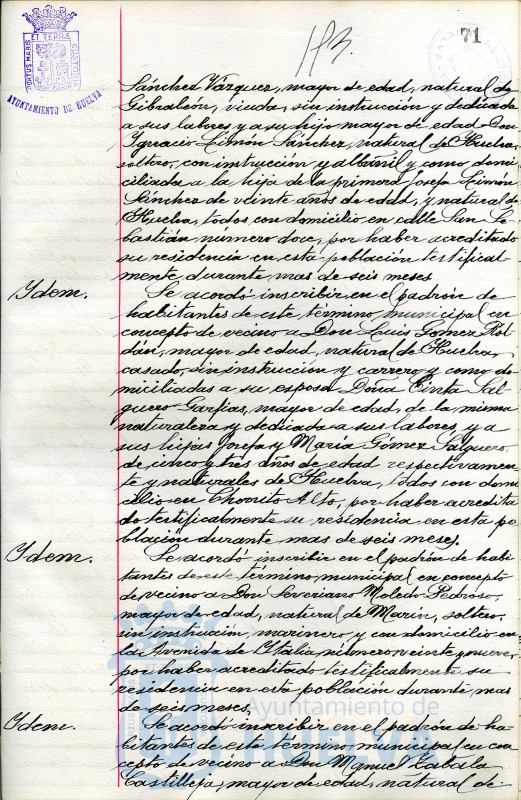 PORTUS MARIS ET TERRÆ CUSTODIA
AYUNTAMIENTO DE HUELVA
113.
71
Sánchez Vázquez, mayor de edad, natural de
Gibraleón, viuda, sin instrucción y dedicada
a sus labores y a su hijo mayor de edad Don
Ignacio Limón Sánchez, natural de Huelva,
soltero, con instrucción y albañil y como domi
ciliada a la hija de la primera Josefa Limón
Sánchez de veinte años de edad, y natural de
Huelva, todos con domicilio en calle San Se
bastián número doce, por haber acreditado
su residencia en esta población testifical-
mente durante mas de seis meses
Idem.
Se acordó inscribir en el padrón de
habitantes de este término municipal en
concepto de vecino a Don Luis Gomez Rol
dán, mayor de edad, natural de Huelva,
casado, sin instrucción y carrero y como do-
miciliadas a su esposa Doña Cinta Sal
guero Garfias, mayor de edad, de la misma
naturaleza y dedicada a sus labores, y a
sus hijas Josefa y María Gómez Salguero
de cinco y tres años de edad respectivamen-
te y naturales de Huelva, todos con domi-
cilio en Chorrito Alto, por haber acredita
do testificalmente su residencia en esta po
blación durante mas de seis meses.
Idem.
Se acordó inscribir en el padrón de habi-
tantes de este término municipal en concepto
de vecino a Don Severiano Moledo Pedroso,
mayor de edad, natural de Marin, soltero,
sin instrucción, marinero y con domicilio en
la Avenida de Italia, número veinte y nueve,
por haber acreditado testificalmente su
residencia en esta población durante mas
de seis meses.
Idem.
Se acordó inscribir en el padrón de ha-
bitantes de este término municipal en con
cepto de vecino a Don Manuel Zabala
Castilleja, mayor de edad, natural de-
Ayuntamiento de
HUELVA